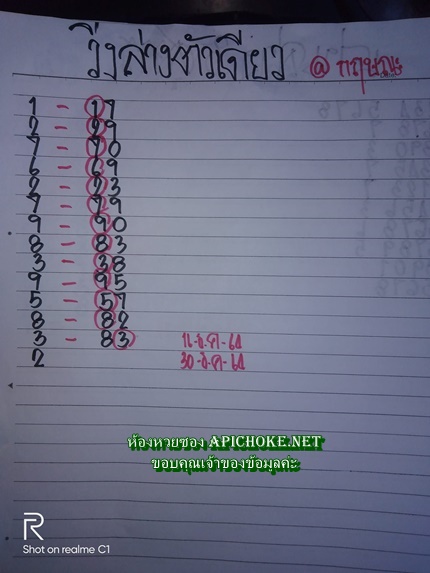 วิ่งล่างตัวเดียว @ กฤษณะ
1 - 17
2 - 29
7 - 70
6 - 69
2 - 23
7 - 79
9 - 90
8 - 83
3 - 38
9 - 95
5 - 57
8 - 82
3 - 83 16-ธ.ค-64
2 30-ธ.ค-64
ห้องหวยซอง APICHOKE.NET
ขอบคุณเจ้าของข้อมูลค่ะ
R
Shot on realme C1